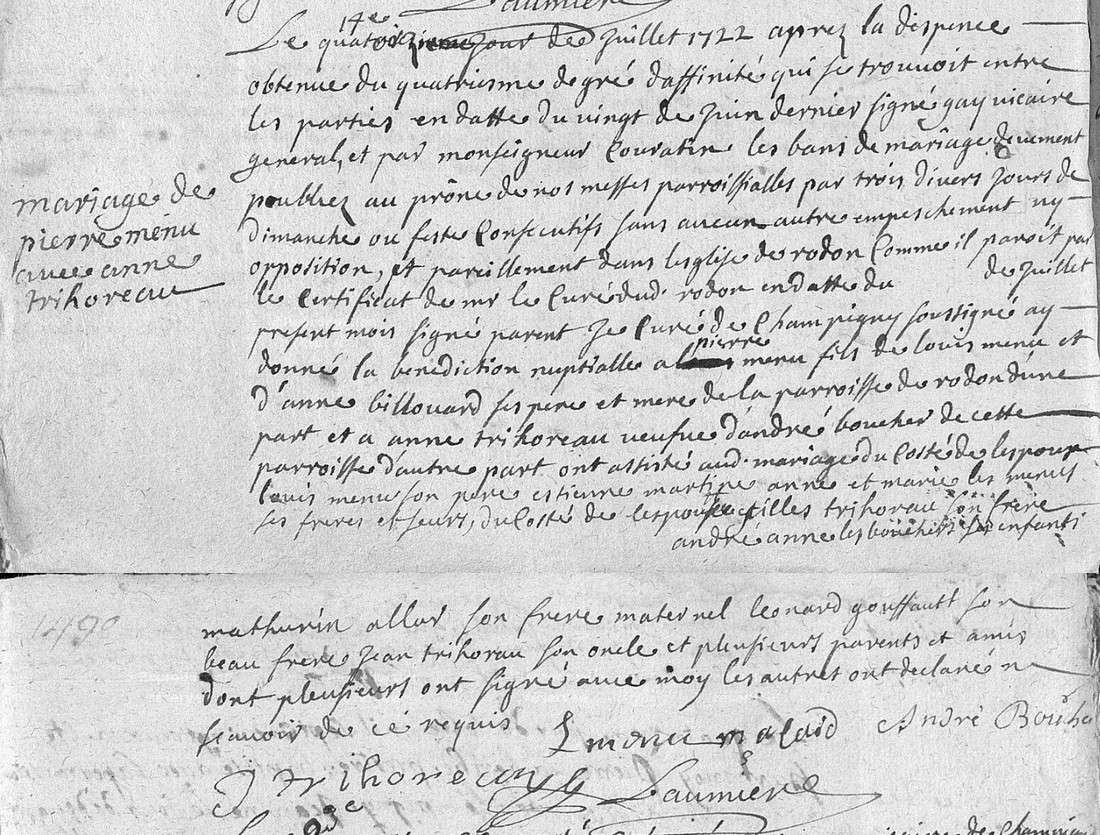 Laumiere
14e
Le quatorzieme jour de Juillet 1722 aprez la dispence
obtenue du quatriesme degré daffinité qui se trouvoit entre
les parties en datte du vingt de Juin dernier signé gay vicaire
general, et par monseigneur Couratin les bans de mariage deuement
mariage de
pierre menu
avec anne
trihoreau
publiez au prône de nos messes parroissialles par trois divers jours de
dimanche ou feste Consecutifs sans aucun autre empeschement ny
opposition, et pareillement dans leglise de rodon Comme il paroit par
le Certificat de mr le Curé dud. rodon en datte du de Juillet
present mois signé parent Je Curé de Champigny soussigné ay
donné la benediction nuptialle a pierre menu fils de louis menu et
d'anne billouard ses pere et mere de la parroisse de rodon d'une
part et a anne trihoreau veufve d'andré boucher de cette
parroisse d'autre part ont assisté aud. mariage du Costé de lespoux
louis menu son pere estienne martin anne et marie les menus
ses freres et seurs, du Costé de lespouse gilles trihorau son frere
andré anne les bouchers ses enfants
1490
mathurin allar son frere maternel leonard gouffault son
beau frere Jean trihorau son oncle et plusieurs parents et amis
dont pleusieurs ont signé avec moy les autres ont declaré n
scavoir de ce requis L menu m alard André Bouche
J trihoreau Laumiere